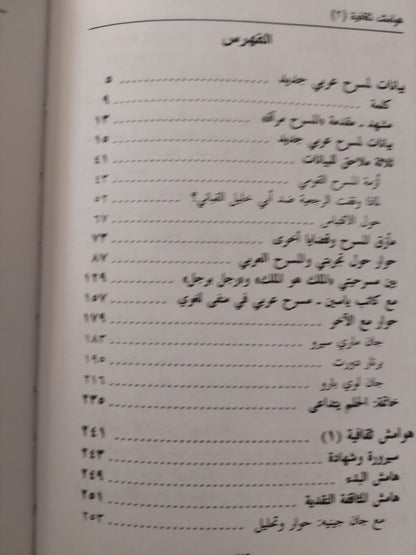 هوامش ثقافية (٢)
الفهرس
بيانات لمسرح عربي جديد ٥
كلمة ٩
مشهد ـ مقدمة «المسرح مرآة» ١٣
بيانات لمسرح عربي جديد ١٥
ثلاثة ملاحق للبيانات ٤١
أزمة المسرح القومي ٤٣
لماذا وقفت الرجعية ضد أبي خليل القباني؟ ٥٢
حول الاقتباس ٦٧
مأزق المسرح وقضايا أخرى ٧٣
حوار حول تجربتي والمسرح العربي ٨٧
بين مسرحيتي «الملك هو الملك» و«رجل برجل» ١٣٩
مع كاتب ياسين ـ مسرح عربي في منفى لغوي ١٥٧
حوار مع الآخر ١٧٩
جان ماري سيرو ١٨٣
برنار دورت ١٩٥
جان لوي بارو ٢١٦
خاتمة: الحلم يتداعى ٢٣٥
هوامش ثقافية (١) ٢٤١
سيرورة وشهادة ٢٤٣
هامش البدء ٢٤٩
هامش للثقافة النقدية ٢٥١
مع جان جينيه: حوار وتحليل ٢٥٣